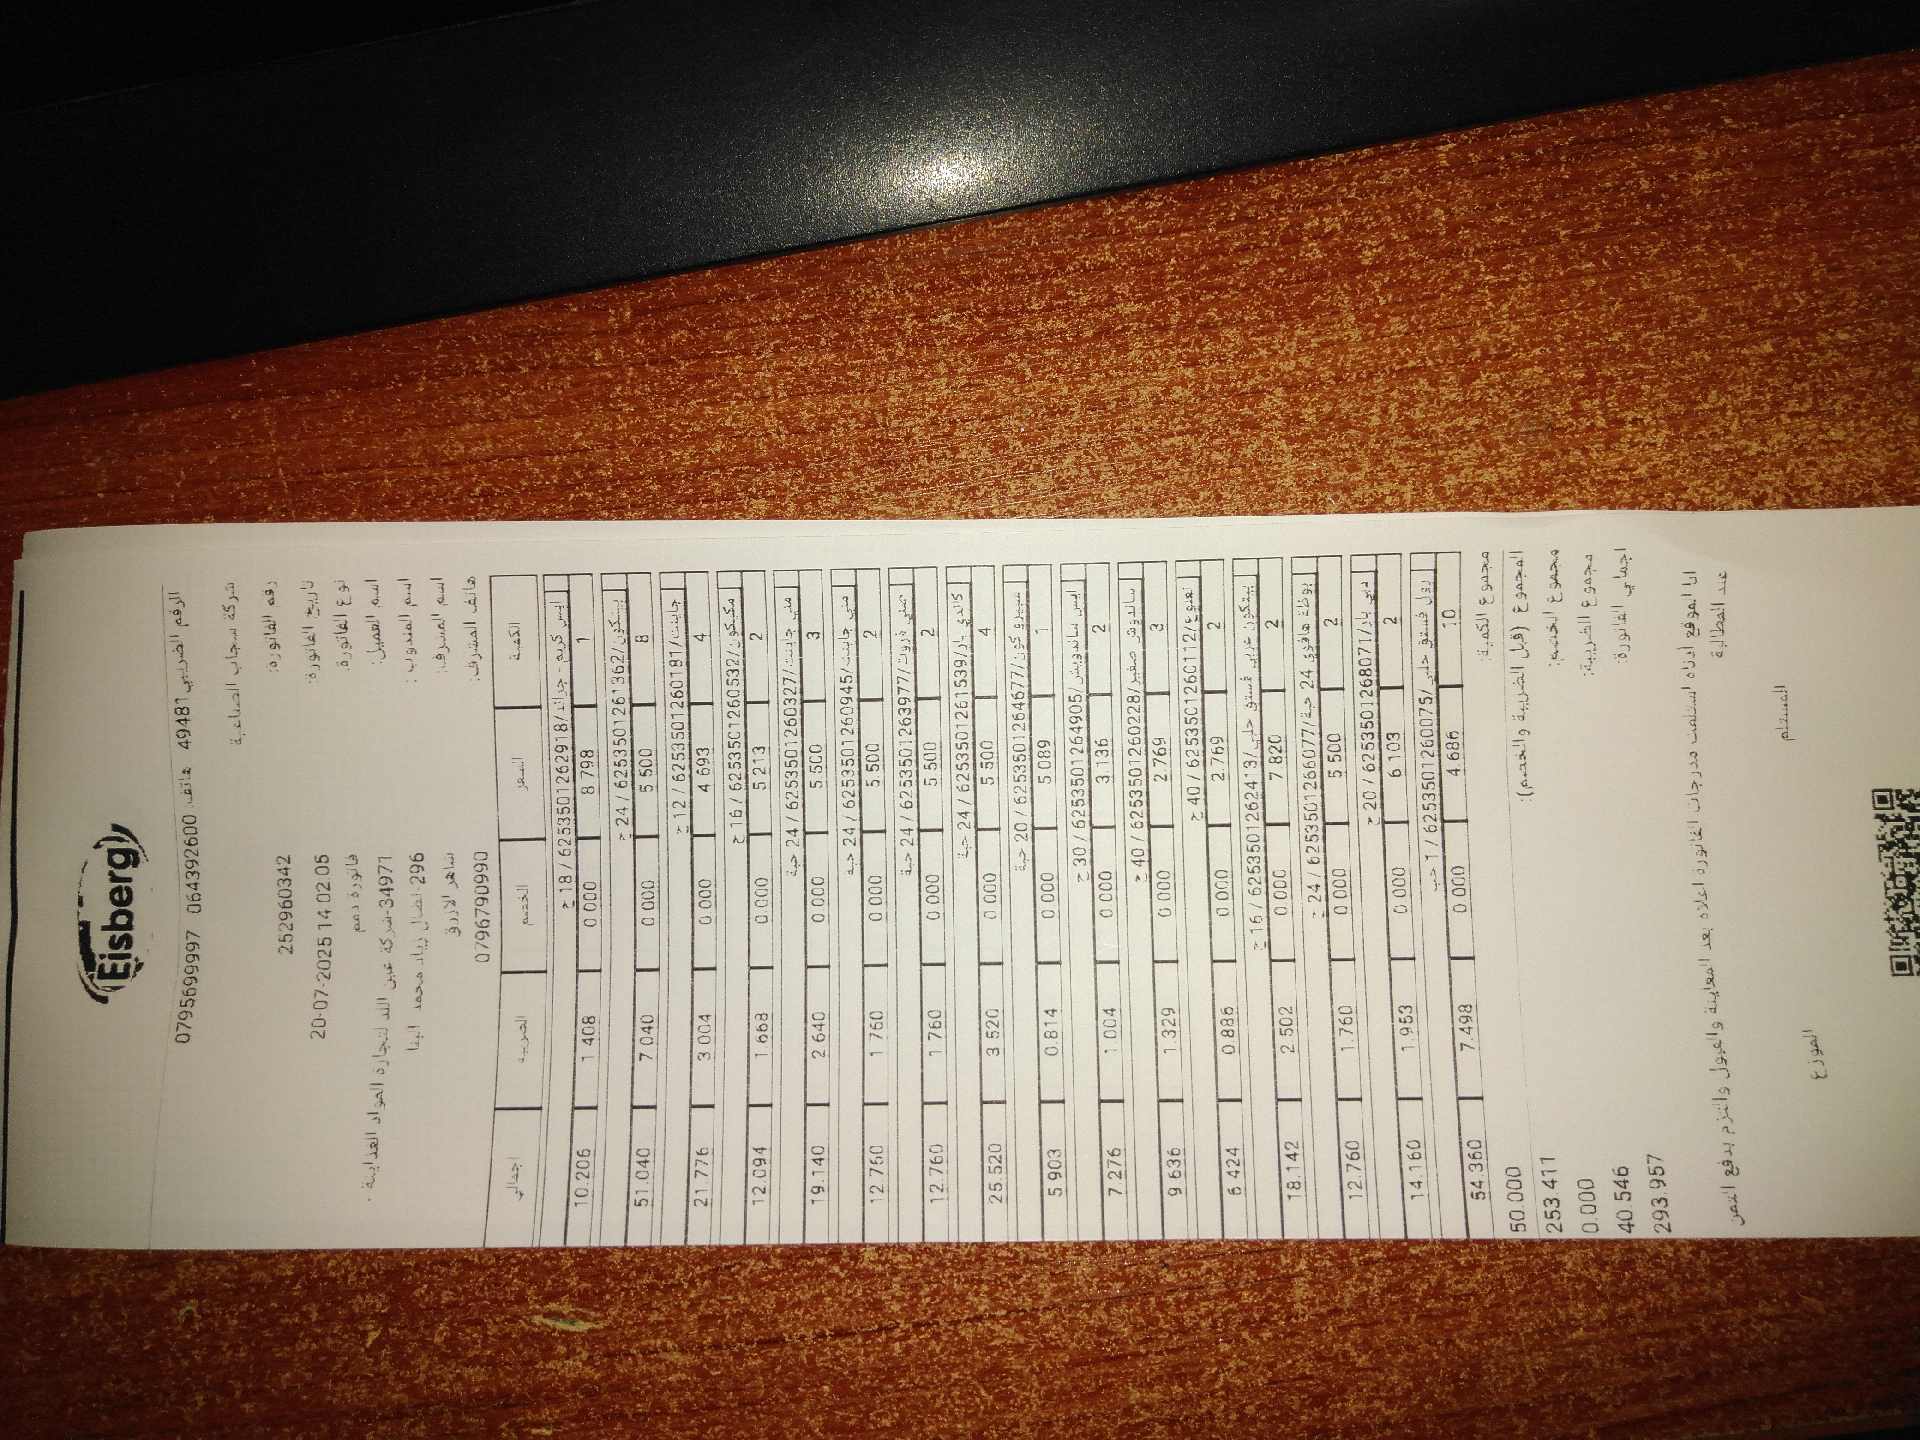 Eisberg
الرقم الضريبي 49481 هاتف 064392600 0795699997
شركة سحاب الصناعية
رقم الفاتورة: 252960342
تاريخ الفاتورة: 20-07-2025 14:02:05
نوع الفاتورة: فاتورة ذمم
اسم العميل: 34971-شركة عين اللد لتجارة المواد الغذائية .
اسم المندوب: 296-نضال زياد محمد البنا
اسم المشرف: شاهر الازرق
هاتف المشرف: 0796790990
الكمية السعر الخصم الضريبة اجمالي
ايس كريم - جراند/6253501262918 / 18 ح
1 8.798 0.000 1.408 10.206
بيتكون/6253501261362 / 24 ح
8 5.500 0.000 7.040 51.040
جاينت/6253501260181 / 12 ح
4 4.693 0.000 3.004 21.776
مكيكون/6253501260532 / 16 ح
2 5.213 0.000 1.668 12.094
مني جاينت/6253501260327 / 24 حبة
3 5.500 0.000 2.640 19.140
مني جاينت/6253501260945 / 24 حبة
2 5.500 0.000 1.760 12.760
6253501263977 / 24 حبة
2 5.500 0.000 1.760 12.760
كاندي بار/6253501261539 / 24 حبة
4 5.500 0.000 3.520 25.520
كون/6253501264677 / 20 حبة
1 5.089 0.000 0.814 5.903
ايس ساندويش/6253501264905 / 30 ح
2 3.136 0.000 1.004 7.276
ساندوش صغير/6253501260228 / 40 ح
3 2.769 0.000 1.329 9.636
6253501260112 / 40 ح
2 2.769 0.000 0.886 6.424
بيتكون عربي فستق حلبي/6253501262413 / 16 ح
2 7.820 0.000 2.502 18.142
بوظة هافوي 24 حبة/6253501266077 / 24 ح
2 5.500 0.000 1.760 12.760
دبي بار/6253501268071 / 20 ح
2 6.103 0.000 1.953 14.160
رول فستق حلبي/6253501260075 / 1 حب
10 4.686 0.000 7.498 54.360
مجموع الكمية: 50.000
المجموع (قبل الضريبة والخصم): 253.411
مجموع الخصم: 0.000
مجموع الضريبة: 40.546
اجمالي الفاتورة: 293.957
انا الموقع ادناه استلمت مدرجات الفاتورة اعلاه بعد المعاينة والقبول والتزم بدفع الثمن
عند المطالبة
المستلم الموزع